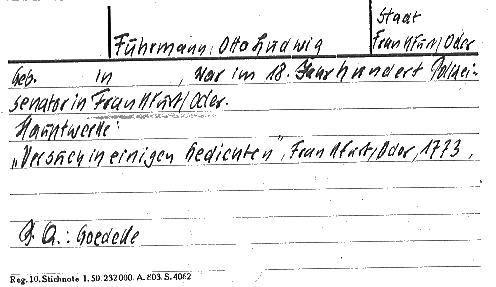 Staat
Fuhrmann, Otto Ludwig
Frankfurt/Oder
Geb. in , war im 18. Jahrhundert Polizei-
senator in Frankfurt/Oder.
Hauptwerke:
„Versuch in einigen Gedichten", Frankfurt/Oder, 1773,
Q.: Goedeke
Reg. 10. Stichnote 1. 50. 232000. A. 803. S. 4062